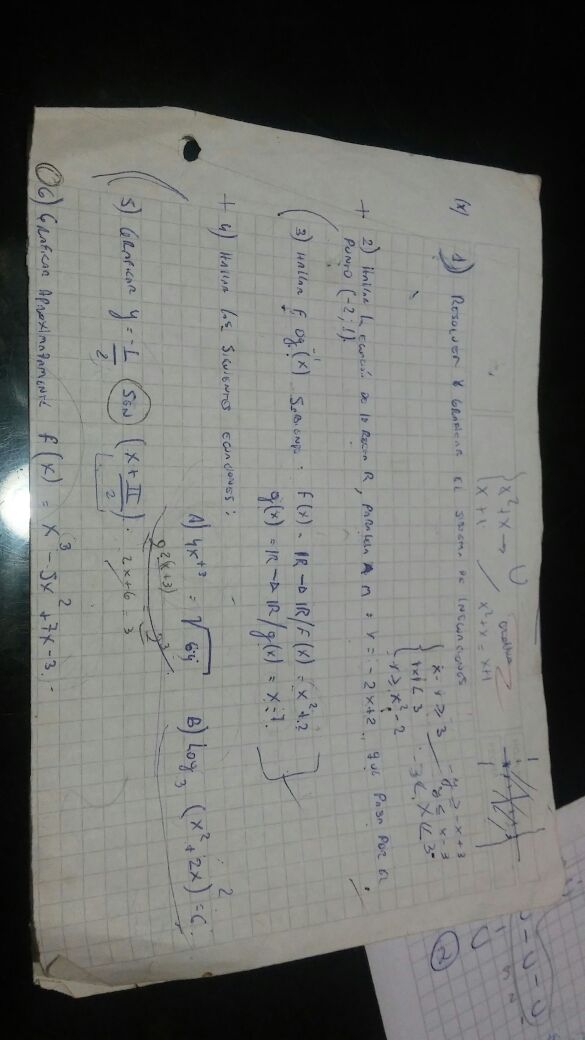 x²+x →
x+1
x²+x = x+1
1) Resolver y graficar el sistema de inecuaciones
x-y ≥ 3
|x| < 3
y ≥ x²-2
-y ≥ -x+3
y ≤ x-3
-3 < x < 3
2) Hallar la ecuación de la recta R, paralela A M: y = -2x+2, que pasa por el
punto (-2;1)
3) Hallar f o g⁻¹(x) sabiendo: f(x) = IR → IR / f(x) = x²+2
g(x) = IR → IR / g(x) = x-7
4) Hallar las siguientes ecuaciones:
A) 4x+3 = √64 B) log₃ (x²+2x) =
2(x+3)
2x+6 = 3
5) Graficar y = -1/2 sen (x + π/2)
6) Graficar aproximadamente f(x) = x³ - 5x² + 7x - 3.
2